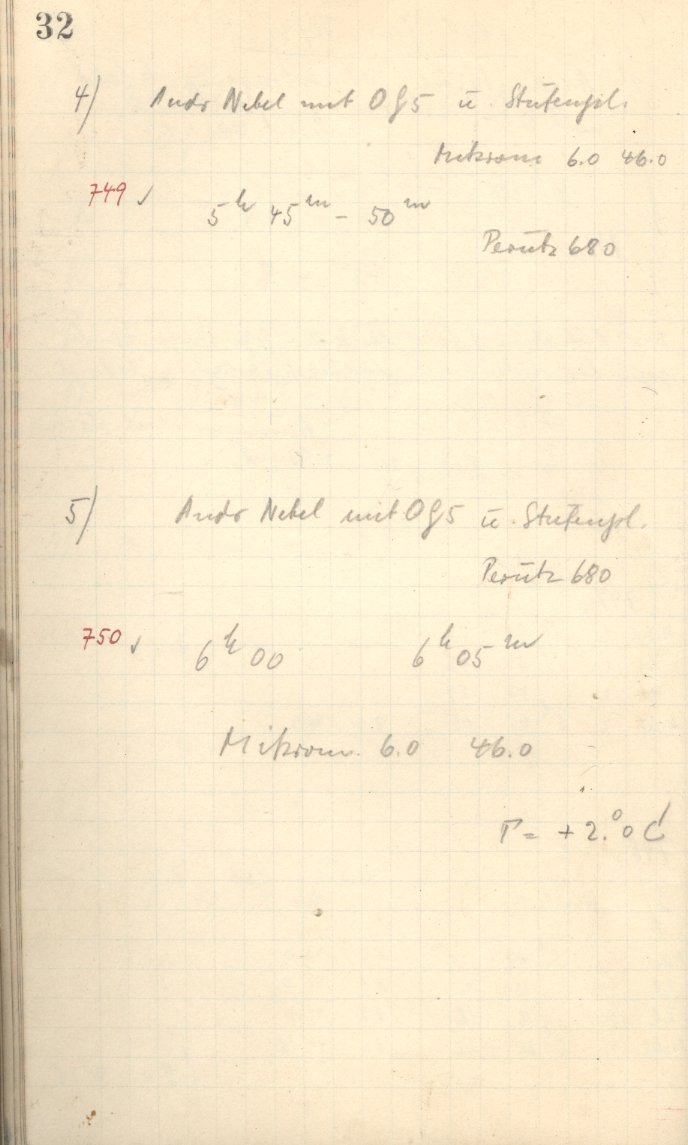 32
4) Andr Nebel mit OG5 ü. Stufenpl.
Mikrom 6.0 46.0
749 ✓ 5h 45m - 50m
Perutz 680
5) Andr Nebel mit OG5 ü. Stufenpl.
Perutz 680
750 ✓ 6h 00 6h 05m
Mikrom. 6.0 46.0
T = +2.°0 C